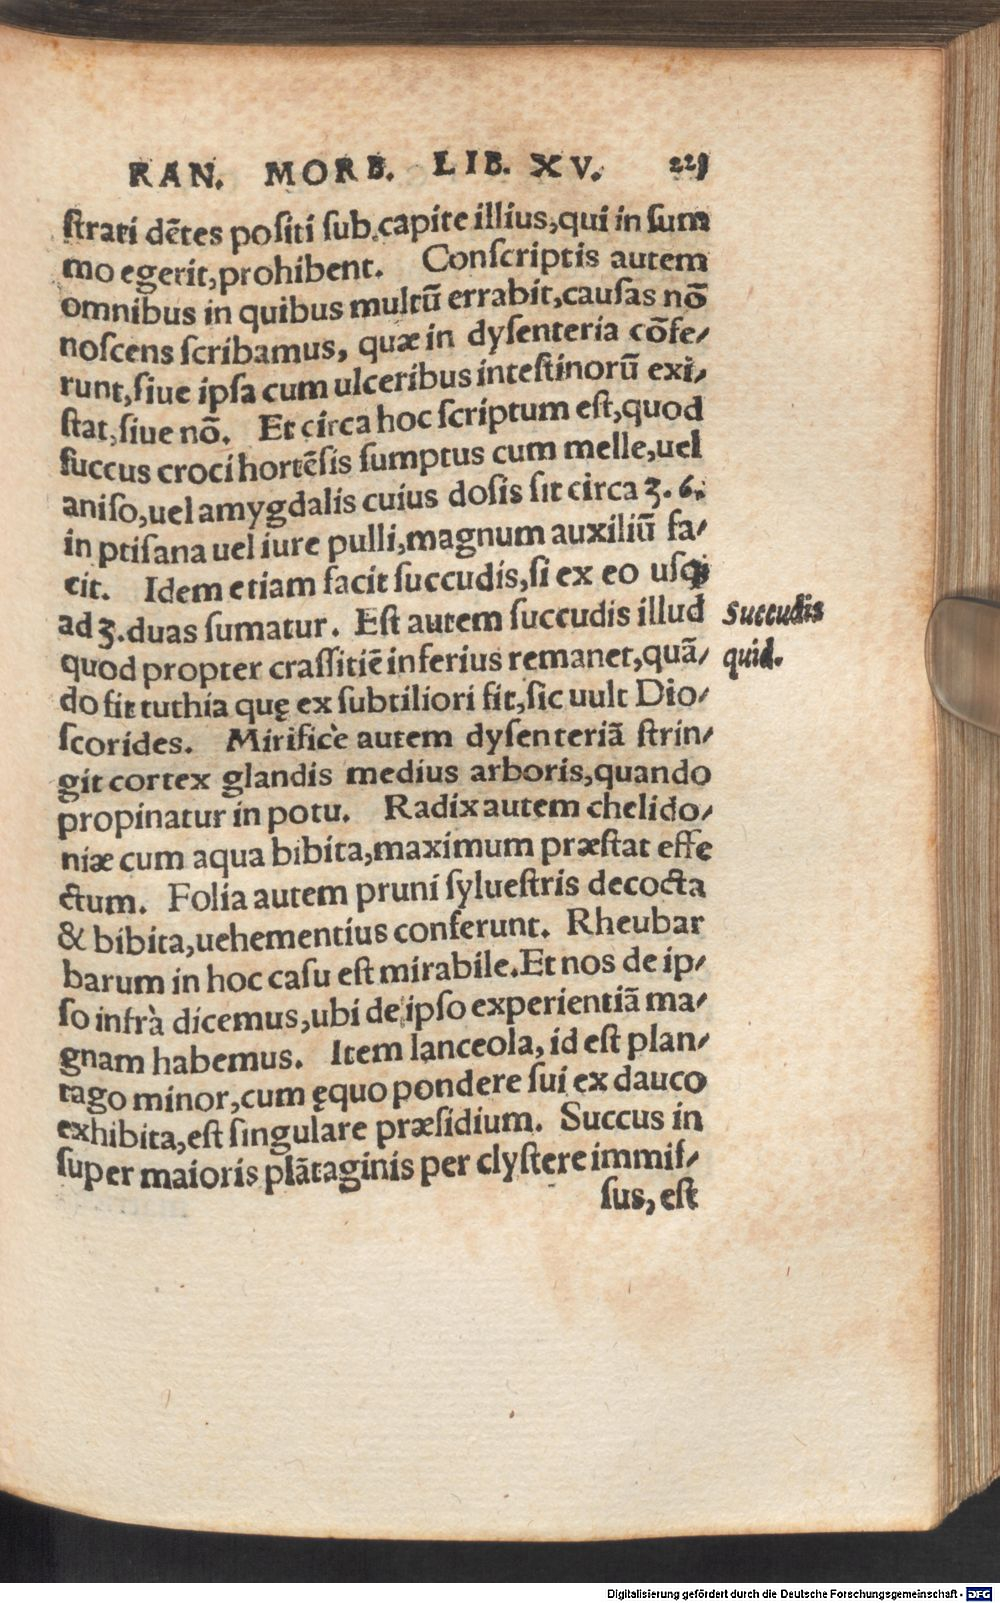 RAN. MORB. LIB. XV. 
ſtrati dētes poſiti ſub capite illius, qui in ſum
mo egerit, prohibent. Conſcriptis autem
omnibus in quibus multū errabit, cauſas nō
noſcens ſcribamus, quæ in dyſenteria cōfe/
runt, ſiue ipſa cum ulceribus inteſtinorū exi/
ſtat, ſiue nō. Et circa hoc ſcriptum eſt, quod
ſuccus croci hortēſis ſumptus cum melle, uel
aniſo, uel amygdalis cuius doſis ſit circa ʒ. 6.
in ptiſana uel iure pulli, magnum auxiliū fa/
cit. Idem etiam facit ſuccudis, ſi ex eo uſq;
ad ʒ. duas ſumatur. Eſt autem ſuccudis illud
Succudis
quod propter craſſitiē inferius remanet, quā/
quid.
do fit tuthia quę ex ſubtiliori fit, ſic uult Dio/
ſcorides. Mirificè autem dyſenteriā ſtrin/
git cortex glandis medius arboris, quando
propinatur in potu. Radix autem chelido/
niæ cum aqua bibita, maximum præſtat effe
ctum. Folia autem pruni ſylueſtris decocta
& bibita, uehementius conferunt. Rheubar
barum in hoc caſu eſt mirabile. Et nos de ip/
ſo infrà dicemus, ubi de ipſo experientiā ma/
gnam habemus. Item lanceola, id eſt plan/
tago minor, cum ęquo pondere ſui ex dauco
exhibita, eſt ſingulare præſidium. Succus in
ſuper maioris plātaginis per clyſtere immiſ/
ſus, eſt
Digitalisierung gefördert durch die Deutsche Forschungsgemeinschaft - DFG